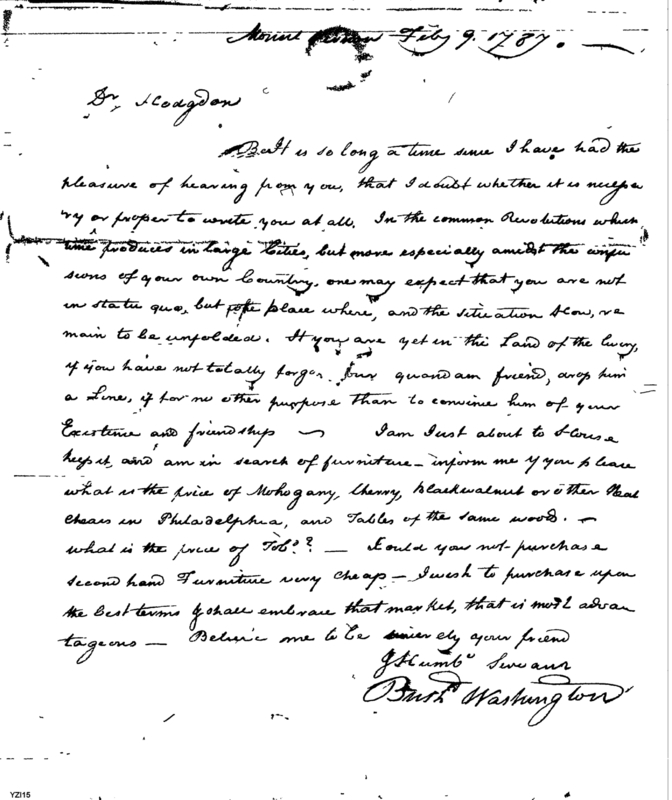 Mount Vernon Feby 9. 1787.
Dr Hodgdon
It is so long a time since I have had the
pleasure of hearing from you, that I doubt whether it is necessa
ry or proper to write you at all. In the common Revolutions which
time produces in large Cities, but more especially amidst the confu
sions of your own Country, one may expect that you are not
in statu quo, but the place where, and the situation How, re
main to be unfolded. If you are yet in the Land of the living,
if you have not totally forgot your quondam friend, drop him
a Line, if for no other purpose than to convince him of your
Existence and friendship — I am Just about to House
keep it, and am in search of furniture — inform me if you please
what is the price of Mohogany, Cherry, blackwalnut or other Neat
Chears in Philadelphia, and Tables of the same wood. —
what is the price of Tobo? — Could you not purchase
second hand Furniture very cheap — I wish to purchase upon
the best terms & shall embrace that market, that is most advan
tageous — Believe me to be sincerely your friend
& Humbe Servant
Bushd Washington
YZI15